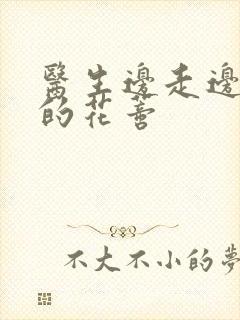 醫生邊走邊
的花蕾
不大不小的夢